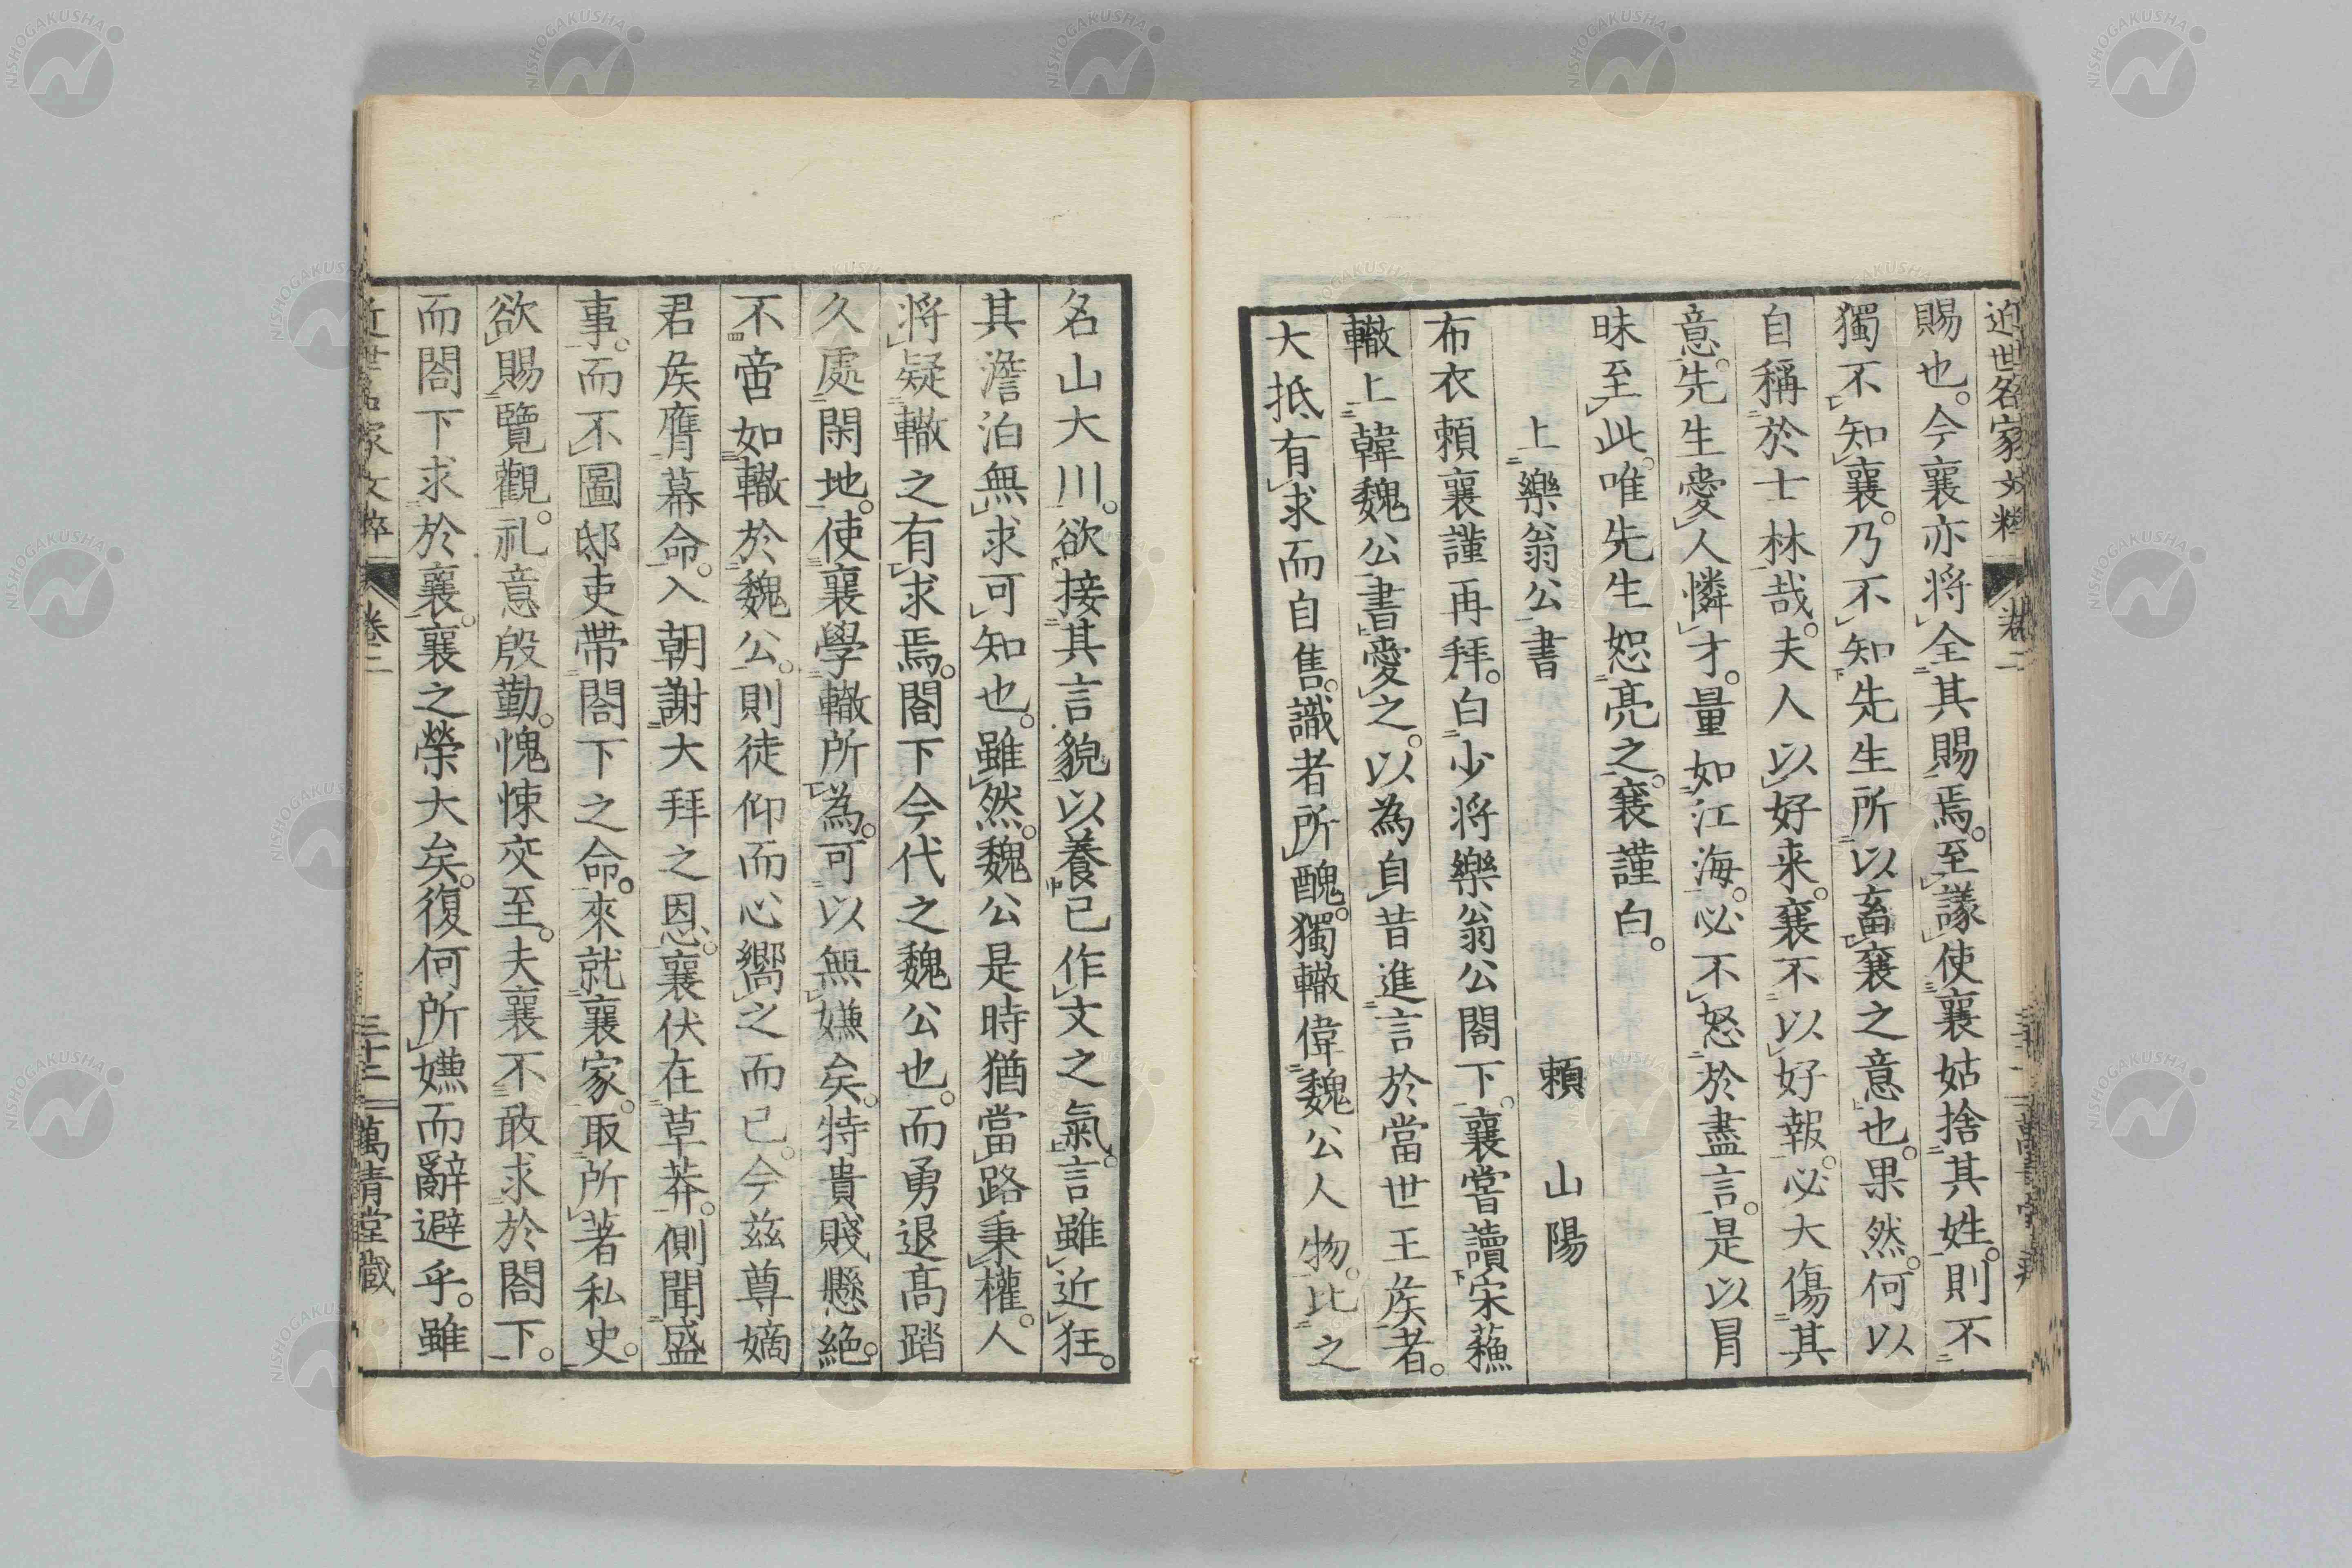 近世名家文粹 卷二
賜也。今襄亦將全其賜焉。至議使襄姑捨其姓。則不
獨不知襄。乃不知先生所以畜襄之意也。果然。何以
自稱於士林哉。夫人以好来。襄不以好報。必大傷其
意。先生愛人憐才。量如江海。必不怒於盡言。是以冐
昧至此。唯先生恕亮之。襄謹白。
上樂翁公書 賴山陽
布衣賴襄謹再拜。白少將樂翁公閤下。襄嘗讀宋蘓
轍上韓魏公書愛之。以為自昔進言於當世王矦者。
大抵有求而自售。識者所醜。獨轍偉魏公人物。比之
名山大川。欲接其言貌以養己作文之氣。言雖近狂。
其澹泊無求可知也。雖然。魏公是時猶當路秉權。人
將疑轍之有求焉。閤下今代之魏公也。而勇退髙踏
久處閑地。使襄學轍所為。可以無嫌矣。特貴賤懸絕。
不啻如轍於魏公。則徒仰而心嚮之而已。今玆尊嫡
君矦膺幕命。入朝謝大拜之恩。襄伏在草莽。側聞盛
事。而不圖邸吏帶閤下之命。來就襄家。取所著私史。
欲賜覽觀。礼意殷勤。愧悚交至。夫襄不敢求於閤下。
而閤下求於襄。襄之榮大矣。復何所嫌而辭避乎。雖
近世名家文粹 卷二 三十二 萬青堂藏